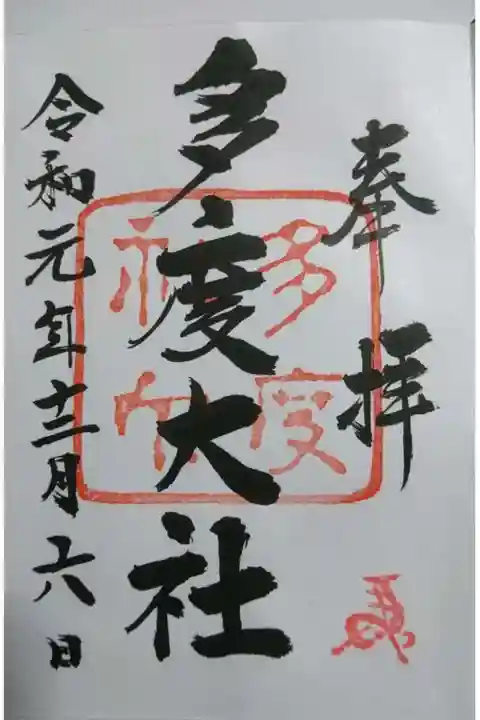 奉拝
多度大社
令和元年十二月六日
多度
神社